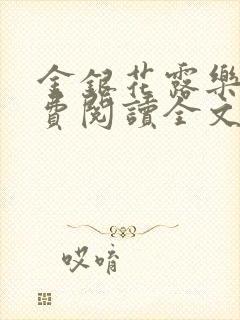 金銀花露樂
費閱讀全文
哎唷